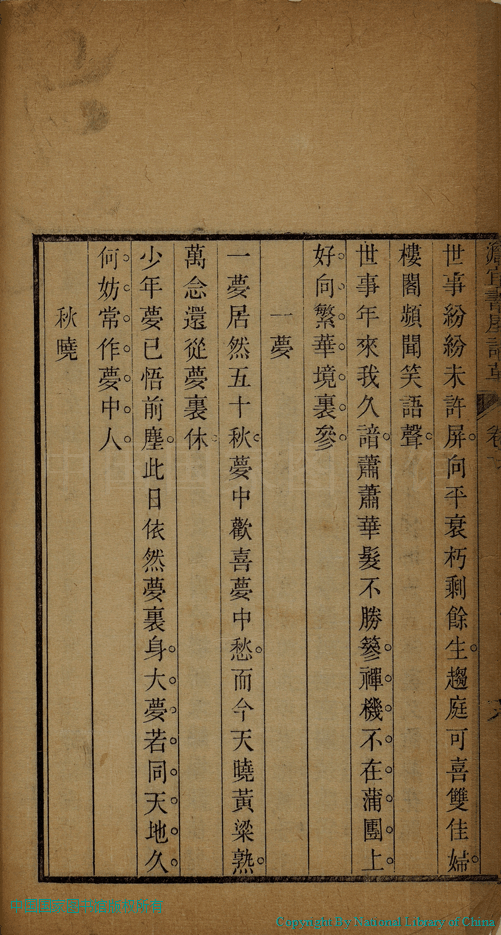 世事紛紛未許屏向平衰朽剩餘生趨庭可喜雙佳婦
樓閣頻聞笑語聲
世事年來我久諳蕭蕭華髮不勝簪禪機不在蒲團上
好向繁華境裏參
一夢
一夢居然五十秋夢中歡喜夢中愁而今天曉黃粱熟
萬念還從夢裏休
少年夢已悟前塵此日依然夢裏身大夢若同天地久
何妨常作夢中人
秋曉
Copyright By National Library of China